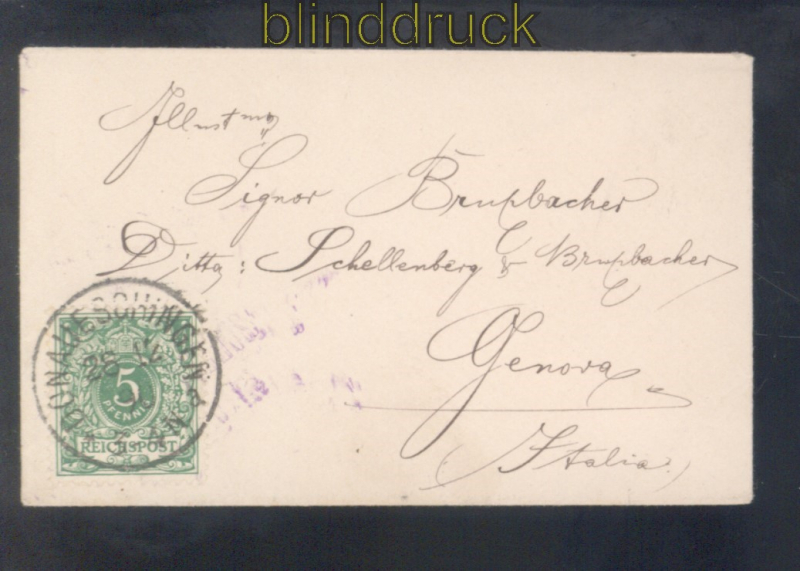 blinddruck
Illustmo
Signor Brupbacher
Ditta: Schellenberg & Brupbacher
Genova
Italia.
DONAUESCHINGEN
28
5
PFENNIG
REICHSPOST